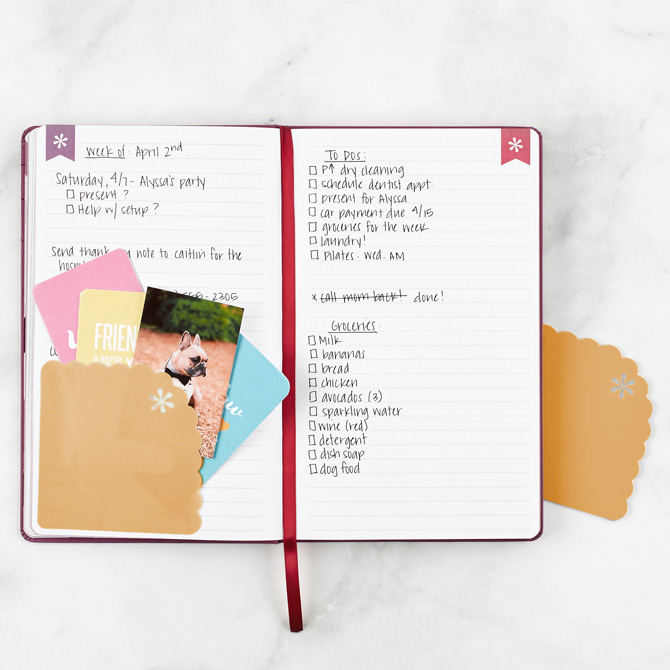 Week of: April 2nd
Saturday, 4/7 - Alyssa's party
present ?
Help w/ setup ?
Send thank note to caitlin for the
- 2305
FRIEN
To Dos:
P↑ dry cleaning
schedule dentist appt.
present for Alyssa
car payment due 4/15
groceries for the week
laundry!
pilates - wed. AM
x call mom back! done!
Groceries:
Milk
bananas
bread
chicken
avocados (3)
sparkling water
wine (red)
detergent
dish soap
dog food